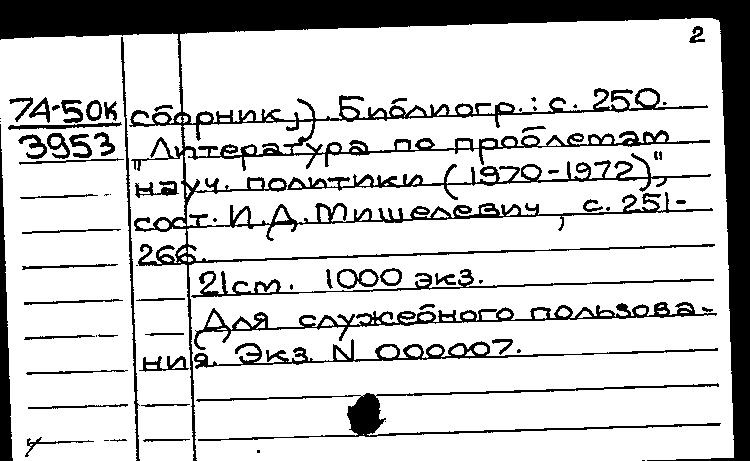 2
74-50к сборник;). Библиогр.: с. 250.
3953 "Литература по проблемам
науч. политики (1970-1972)",
сост. И.Д. Мишелевич, с. 251-
266.
21 см. 1000 экз.
Для служебного пользова-
ния. Экз. N 000007.